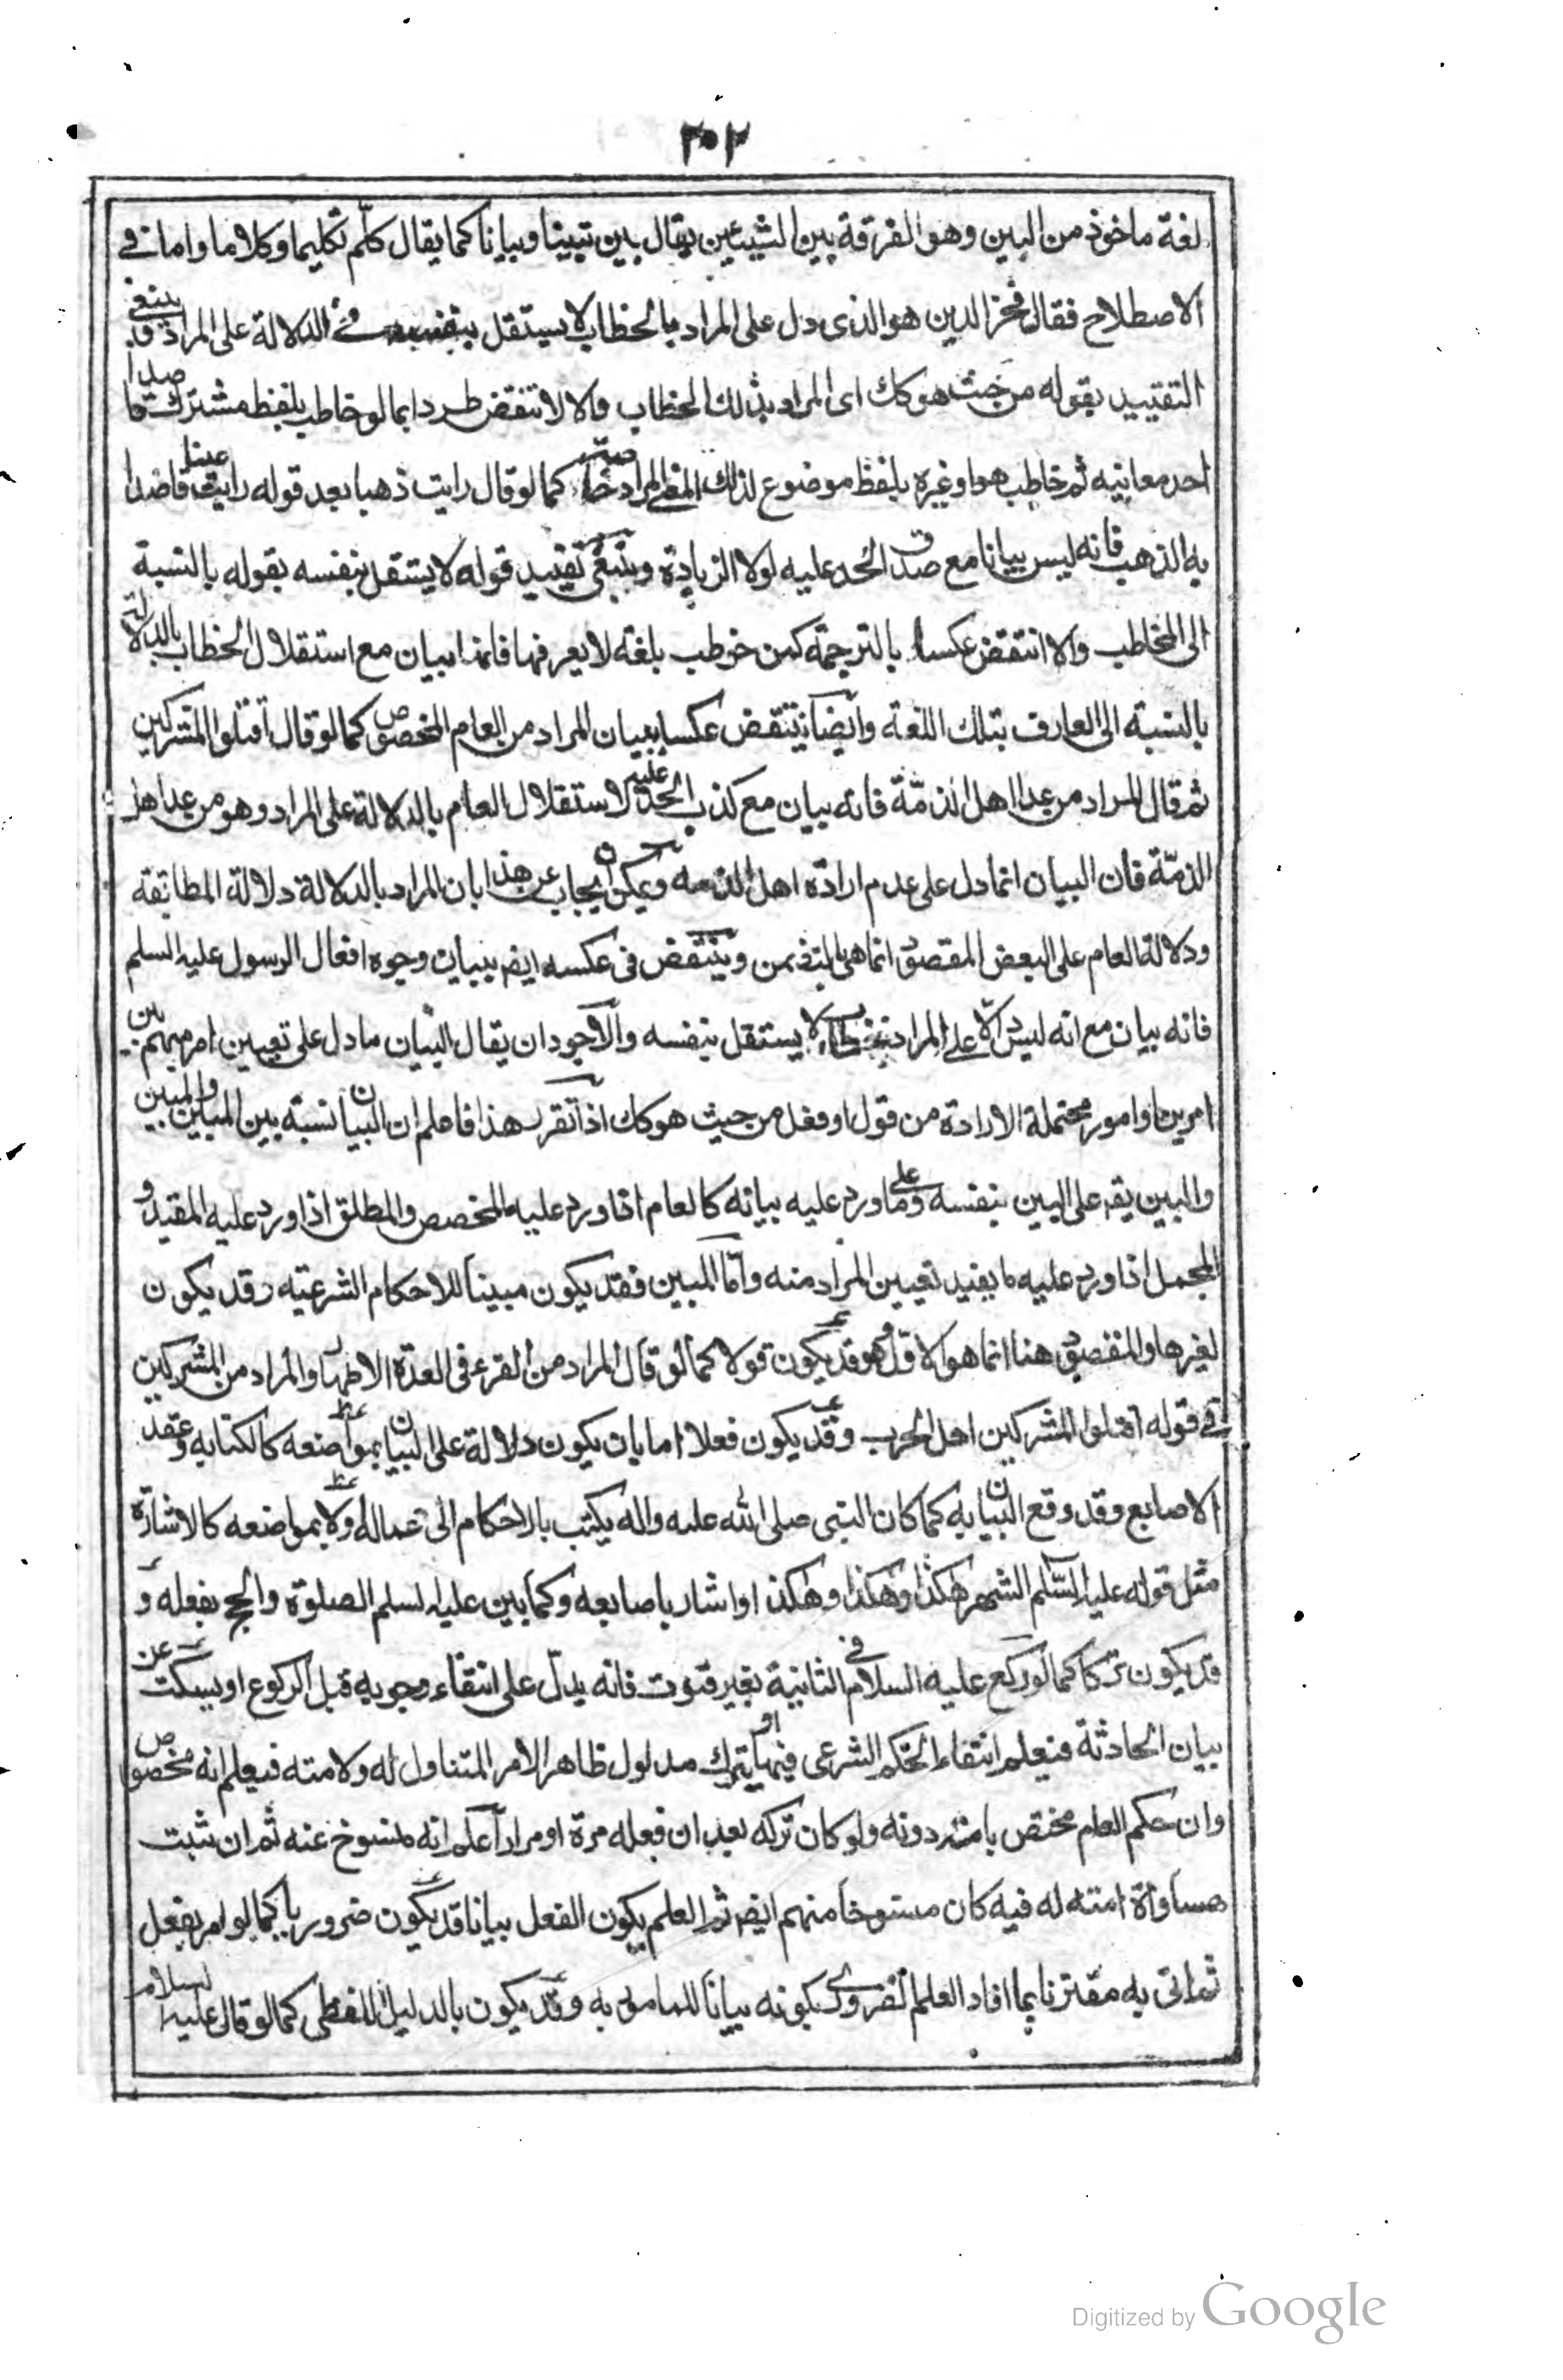 ٢٠٢
لغة ماخوذ من البين وهو الفرقة بين الشيئين يقال بين تبيينا وبيانا كما يقال كلّم تكليما وكلاما واما في
الاصطلاح فقال فخر الدين هو الذى دل على المراد بالخطاب لا يستقل بنفسه في الدلالة على المراد وينبغي
التقييد بقوله من حيث هو كك اى المراد بذلك الخطاب والا لانتقض طردا بما لو خاطب بلفظ مشترك قاصدا
احد معانيه ثم خاطب هو او غيره بلفظ موضوع لذلك المعنى المراد كما لو قال رايت ذهبا بعد قوله رايت عينا قاصدا
به الذهب فانه ليس بيانا مع صدق الحد عليه لولا الزيادة وينبغى تقييد قوله لا يستقل بنفسه بقوله بالنسبة
الى المخاطب والا انتقض عكسا بالترجمة كمن خوطب بلغة لا يعرفها فانها بيان مع استقلال الخطاب بالدلالة
بالنسبة الى العارف بتلك اللغة وايضا ينتقض عكسا ببيان المراد من العام المخصوص كما لو قال اقتلوا المشركين
ثم قال المراد من عدا اهل الذمّة فانه بيان مع كذب الحد عليه لاستقلال العام بالدلالة على المراد وهو من عدا اهل
الذمّة فان البيان انما دل على عدم ارادة اهل الذمه ويمكن ان يجاب عن هذا بان المراد بالدلالة دلالة المطابقة
ودلالة العام على البعض المقصود انما هى بالتضمن وينتقض فى عكسه ايضا ببيان وجوه افعال الرسول عليه السلم
فانه بيان مع انه ليس دالا على المراد بخطاب لا يستقل بنفسه والاجود ان يقال البيان ما دل على تعيين امر مبهم بين
امرين او امور محتملة الارادة من قول او فعل من حيث هو كك اذا تقرر هذا فاعلم ان البيان نسبة بين المبيّن والمبين
والبين يقع على البين بنفسه وعلى ما ورد عليه بيانه كالعام اذا ورد عليه المخصص والمطلق اذا ورد عليه المقيد و
المجمل اذا ورد عليه ما يفيد تعيين المراد منه وامّا المبين فقد يكون مبينا للاحكام الشرعيّه وقد يكون
لغيرها والمقصود هنا انما هو الاول وهو قد يكون قولا كما لو قال المراد من القرء فى العدّة الاطهار والمراد من المشركين
في قوله اقتلوا المشركين اهل الحرب وقد يكون فعلا اما بان يكون دلالة على البيان بمواضعه كالكتابه وعقد
الاصابع وقد وقع البيان به كما كان النبى صلى الله عليه واله يكتب بالاحكام الى عماله اولا بمواضعه كالاشارة
مثل قوله عليه السّلم الشهر هكذا وهكذا وهكذا واشار باصابعه وكما بين عليه لسلم الصلوة والحج بفعله و
قد يكون تركا كما لو ركع عليه السلام فى الثانية بغير قنوت فانه يدلّ على انتفاء وجوبه قبل الركوع او يسكت عن
بيان الحادثة فيعلم انتفاء الحكم الشرعى فيها او يترك مدلول ظاهر الامر المتناول له ولامته فيعلم انه مخصوص
وان حكم العام مختص بامته دونه ولو كان تركه بعد ان فعله مرة او مرارا علم انه منسوخ عنه ثم ان ثبت
مساواة امته له فيه كان منسوخا منهم ايضا ثم العلم بكون الفعل بيانا قد يكون ضروريا كما لو امر بفعل
ثم اتى به مقترنا بما افاد العلم الضرورى بكونه بيانا للمامور به وقد يكون بالدليل اللفظى كما لو قال عليه السلام
Digitized by Google